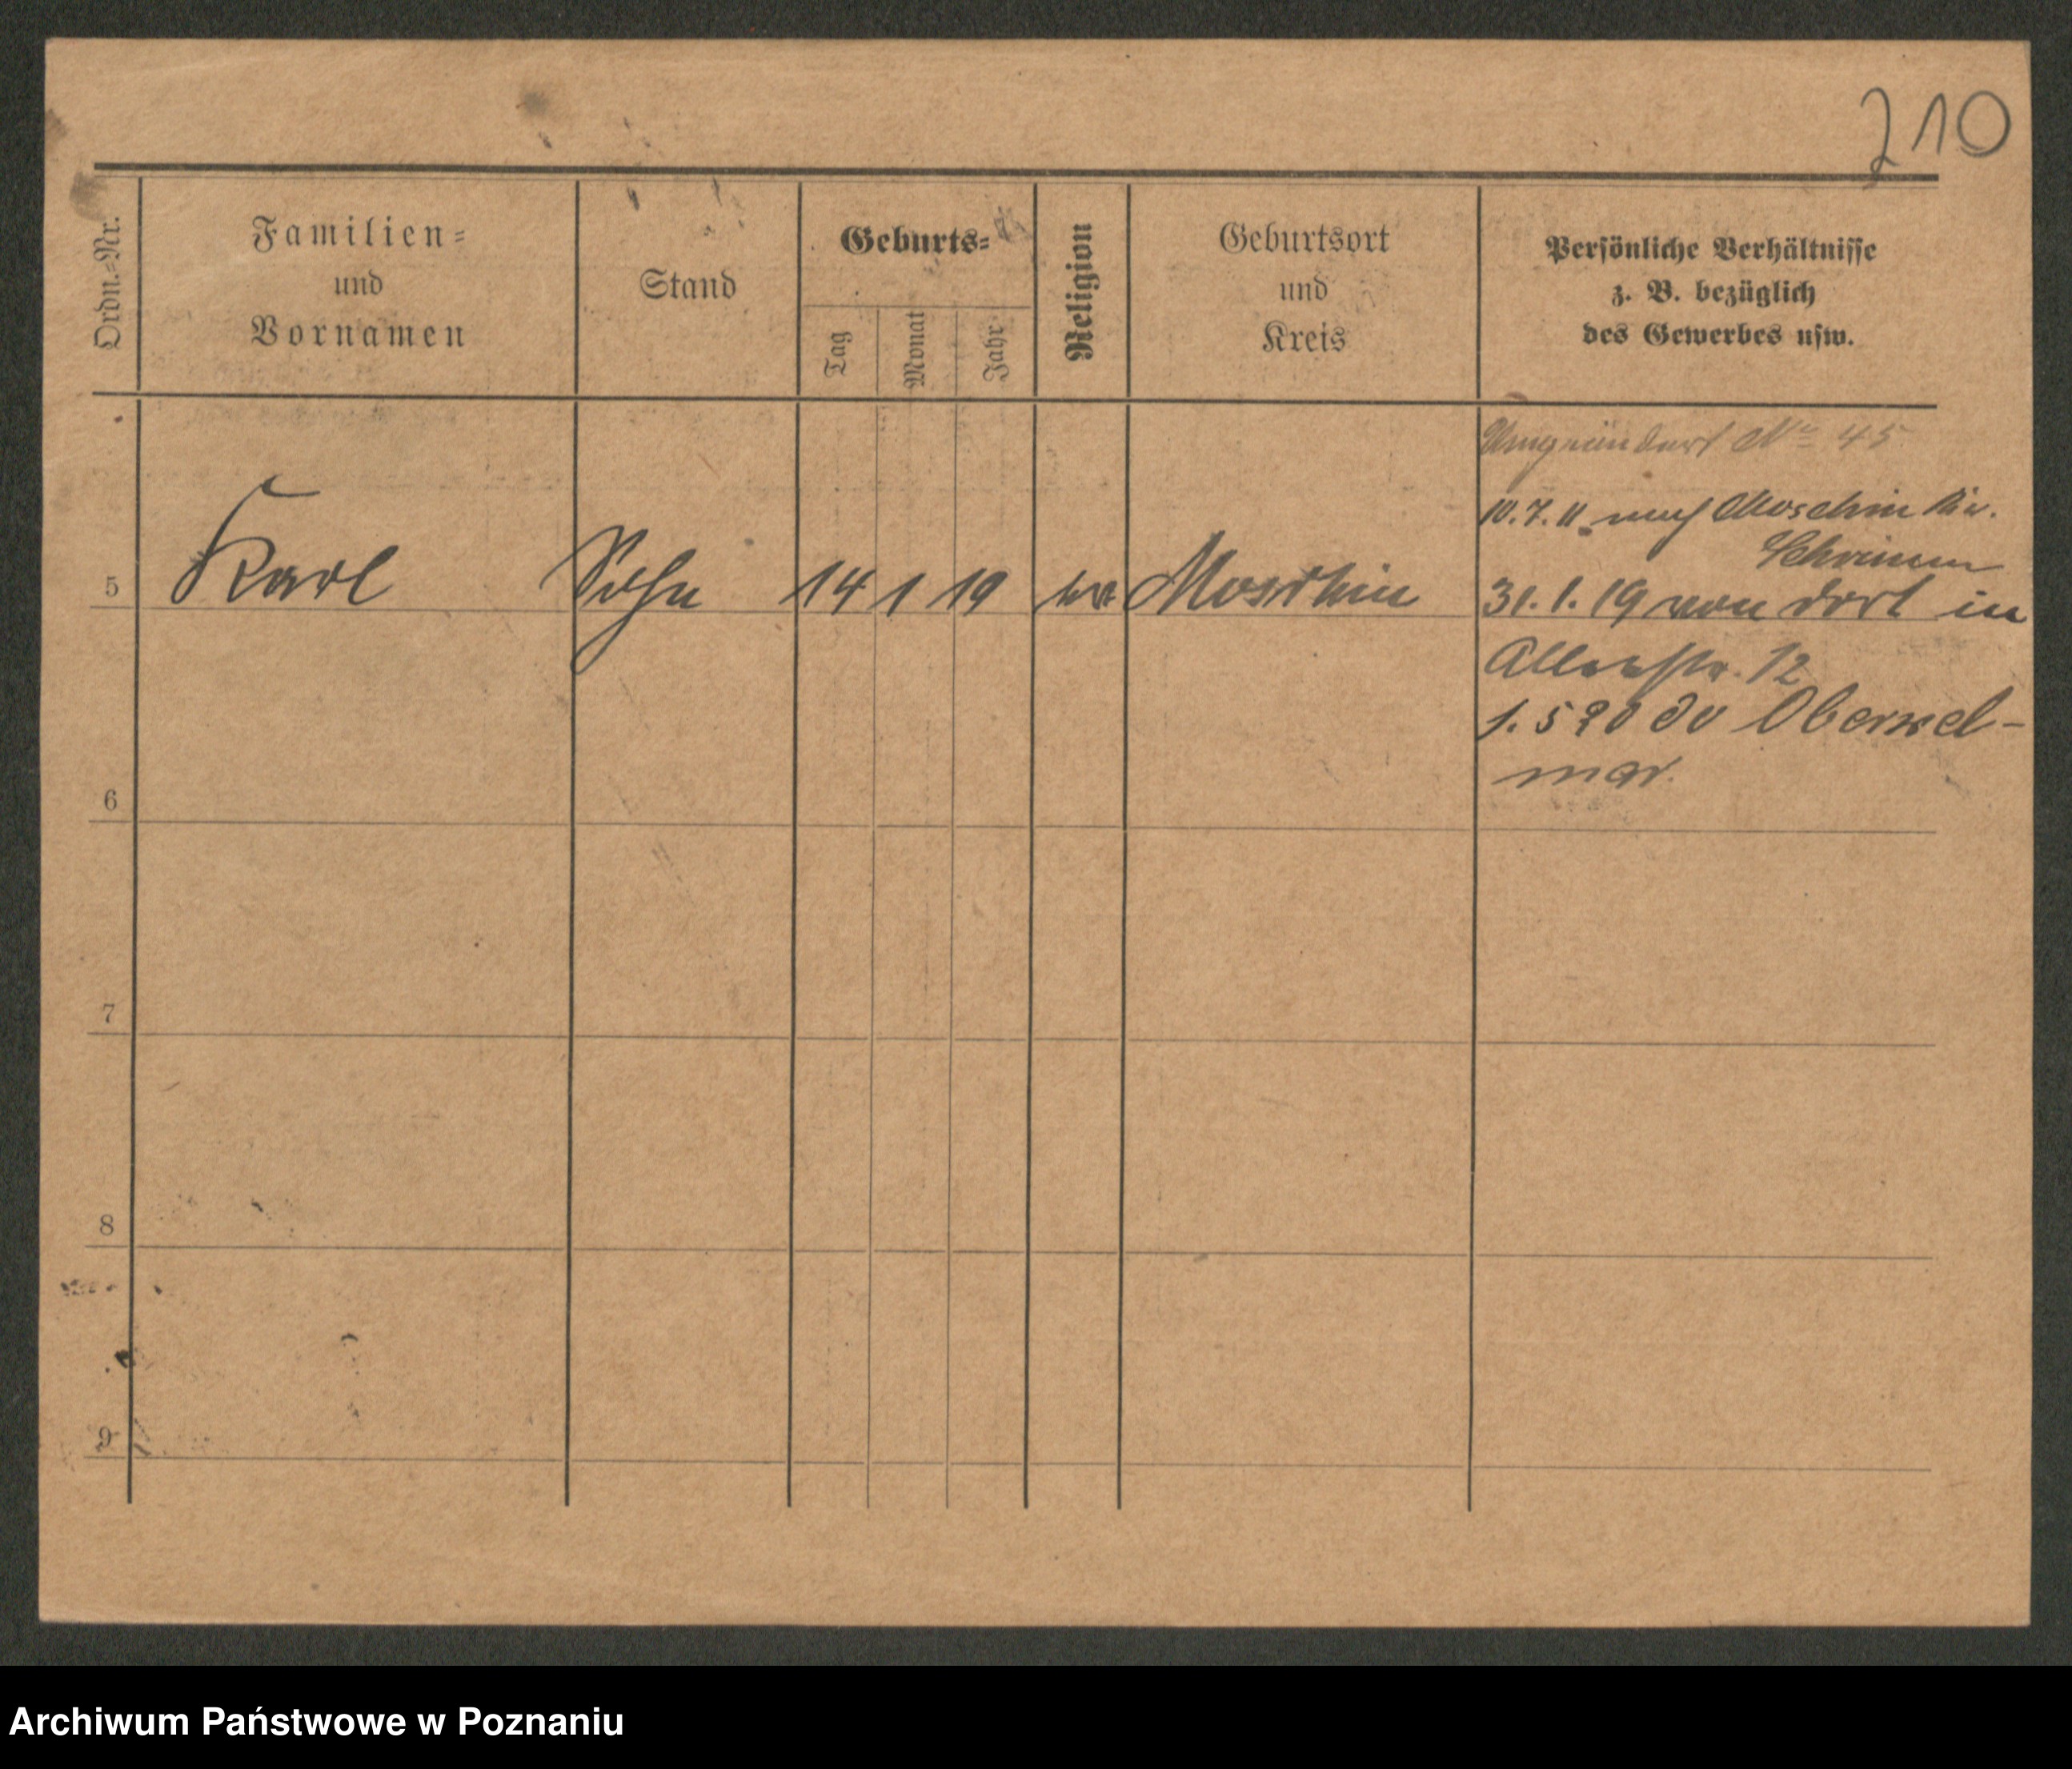 210
Ordn.=Nr.
Familien=
und
Vornamen
Stand
Geburts=
Tag
Monat
Jahr
Religion
Geburtsort
und
Kreis
Persönliche Verhältnisse
z. B. bezüglich
des Gewerbes usw.
No 45
10.7.11 nach Moschin Kr.
Schrimm
5 Karl Sohn 14 1 19 Moschin 31.1.19 von dort in
12
1.5 20 Oberwel-
mar.
6
7
8
9
Archiwum Państwowe w Poznaniu